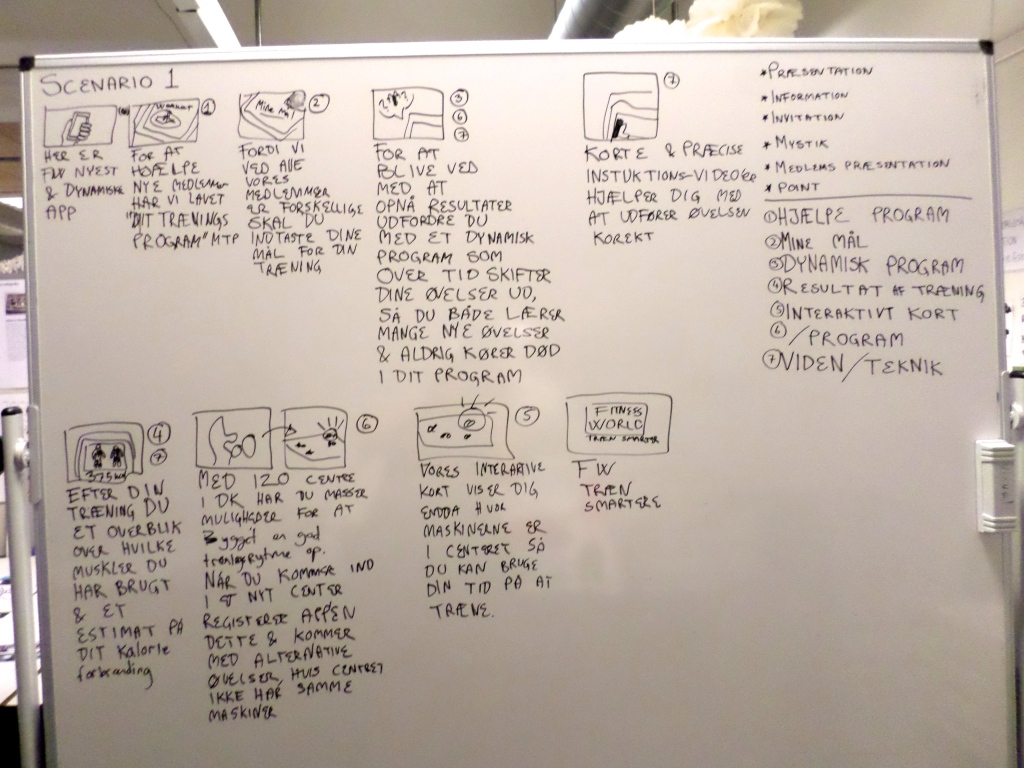 SCENARIO 1
HER ER
FW NYEST
& DYNAMISKE
APP
①
FOR AT
HJÆLPE
NYE MEDLEMMER
HAR VI LAVET
"DIT TRÆNINGS
PROGRAM" MTP
②
FORDI VI
VED ALLE
VORES
MEDLEMMER
ER FORSKELLIGE
SKAL DU
INDTASTE DINE
MÅL FOR DIN
TRÆNING
③
⑥
⑦
FOR AT
BLIVE VED
MED AT
OPNÅ RESULTATER
UDFORDRE DU
MED ET DYNAMISK
PROGRAM SOM
OVER TID SKIFTER
DINE ØVELSER UD,
SÅ DU BÅDE LÆRER
MANGE NYE ØVELSER
& ALDRIG KØRER DØD
I DIT PROGRAM
⑦
KORTE & PRÆCISE
INSTUKTIONS-VIDEOER
HJÆLPER DIG MED
AT UDFØRER ØVELSEN
KOREKT
* PRÆSENTATION
* INFORMATION
* INVITATION
* MYSTIK
* MEDLEMS PRÆSENTATION
* POINT
① HJÆLPE PROGRAM
② MINE MÅL
③ DYNAMISK PROGRAM
④ RESULTAT AF TRÆNING
⑤ INTERAKTIVT KORT
⑥ /PROGRAM
⑦ VIDEN/TEKNIK
④
⑦
375 kcal
EFTER DIN
TRÆNING DU
ET OVERBLIK
OVER HVILKE
MUSKLER DU
HAR BRUGT
& ET
ESTIMAT PÅ
DIT Kalorie
forbrænding
⑥
MED 120 CENTRE
I DK HAR DU MASSER
MULIGHEDER FOR AT
Bygget en god
træningsrytme op.
NÅR DU KOMMER IND
I ET NYT CENTER
REGISTERSE APPEN
DETTE & KOMMER
MED ALTERNATIVE
ØVELSER, HVIS CENTRET
IKKE HAR SAMME
MASKINER
⑤
VORES INTERAKTIVE
KORT VISER DIG
ENDDA HVOR
MASKINERNE ER
I CENTERET SÅ
DU KAN BRUGE
DIN TID PÅ AT
TRÆNE.
FITNESS
WORLD
TRÆN SMARTER
FW
TRÆN
SMARTERE